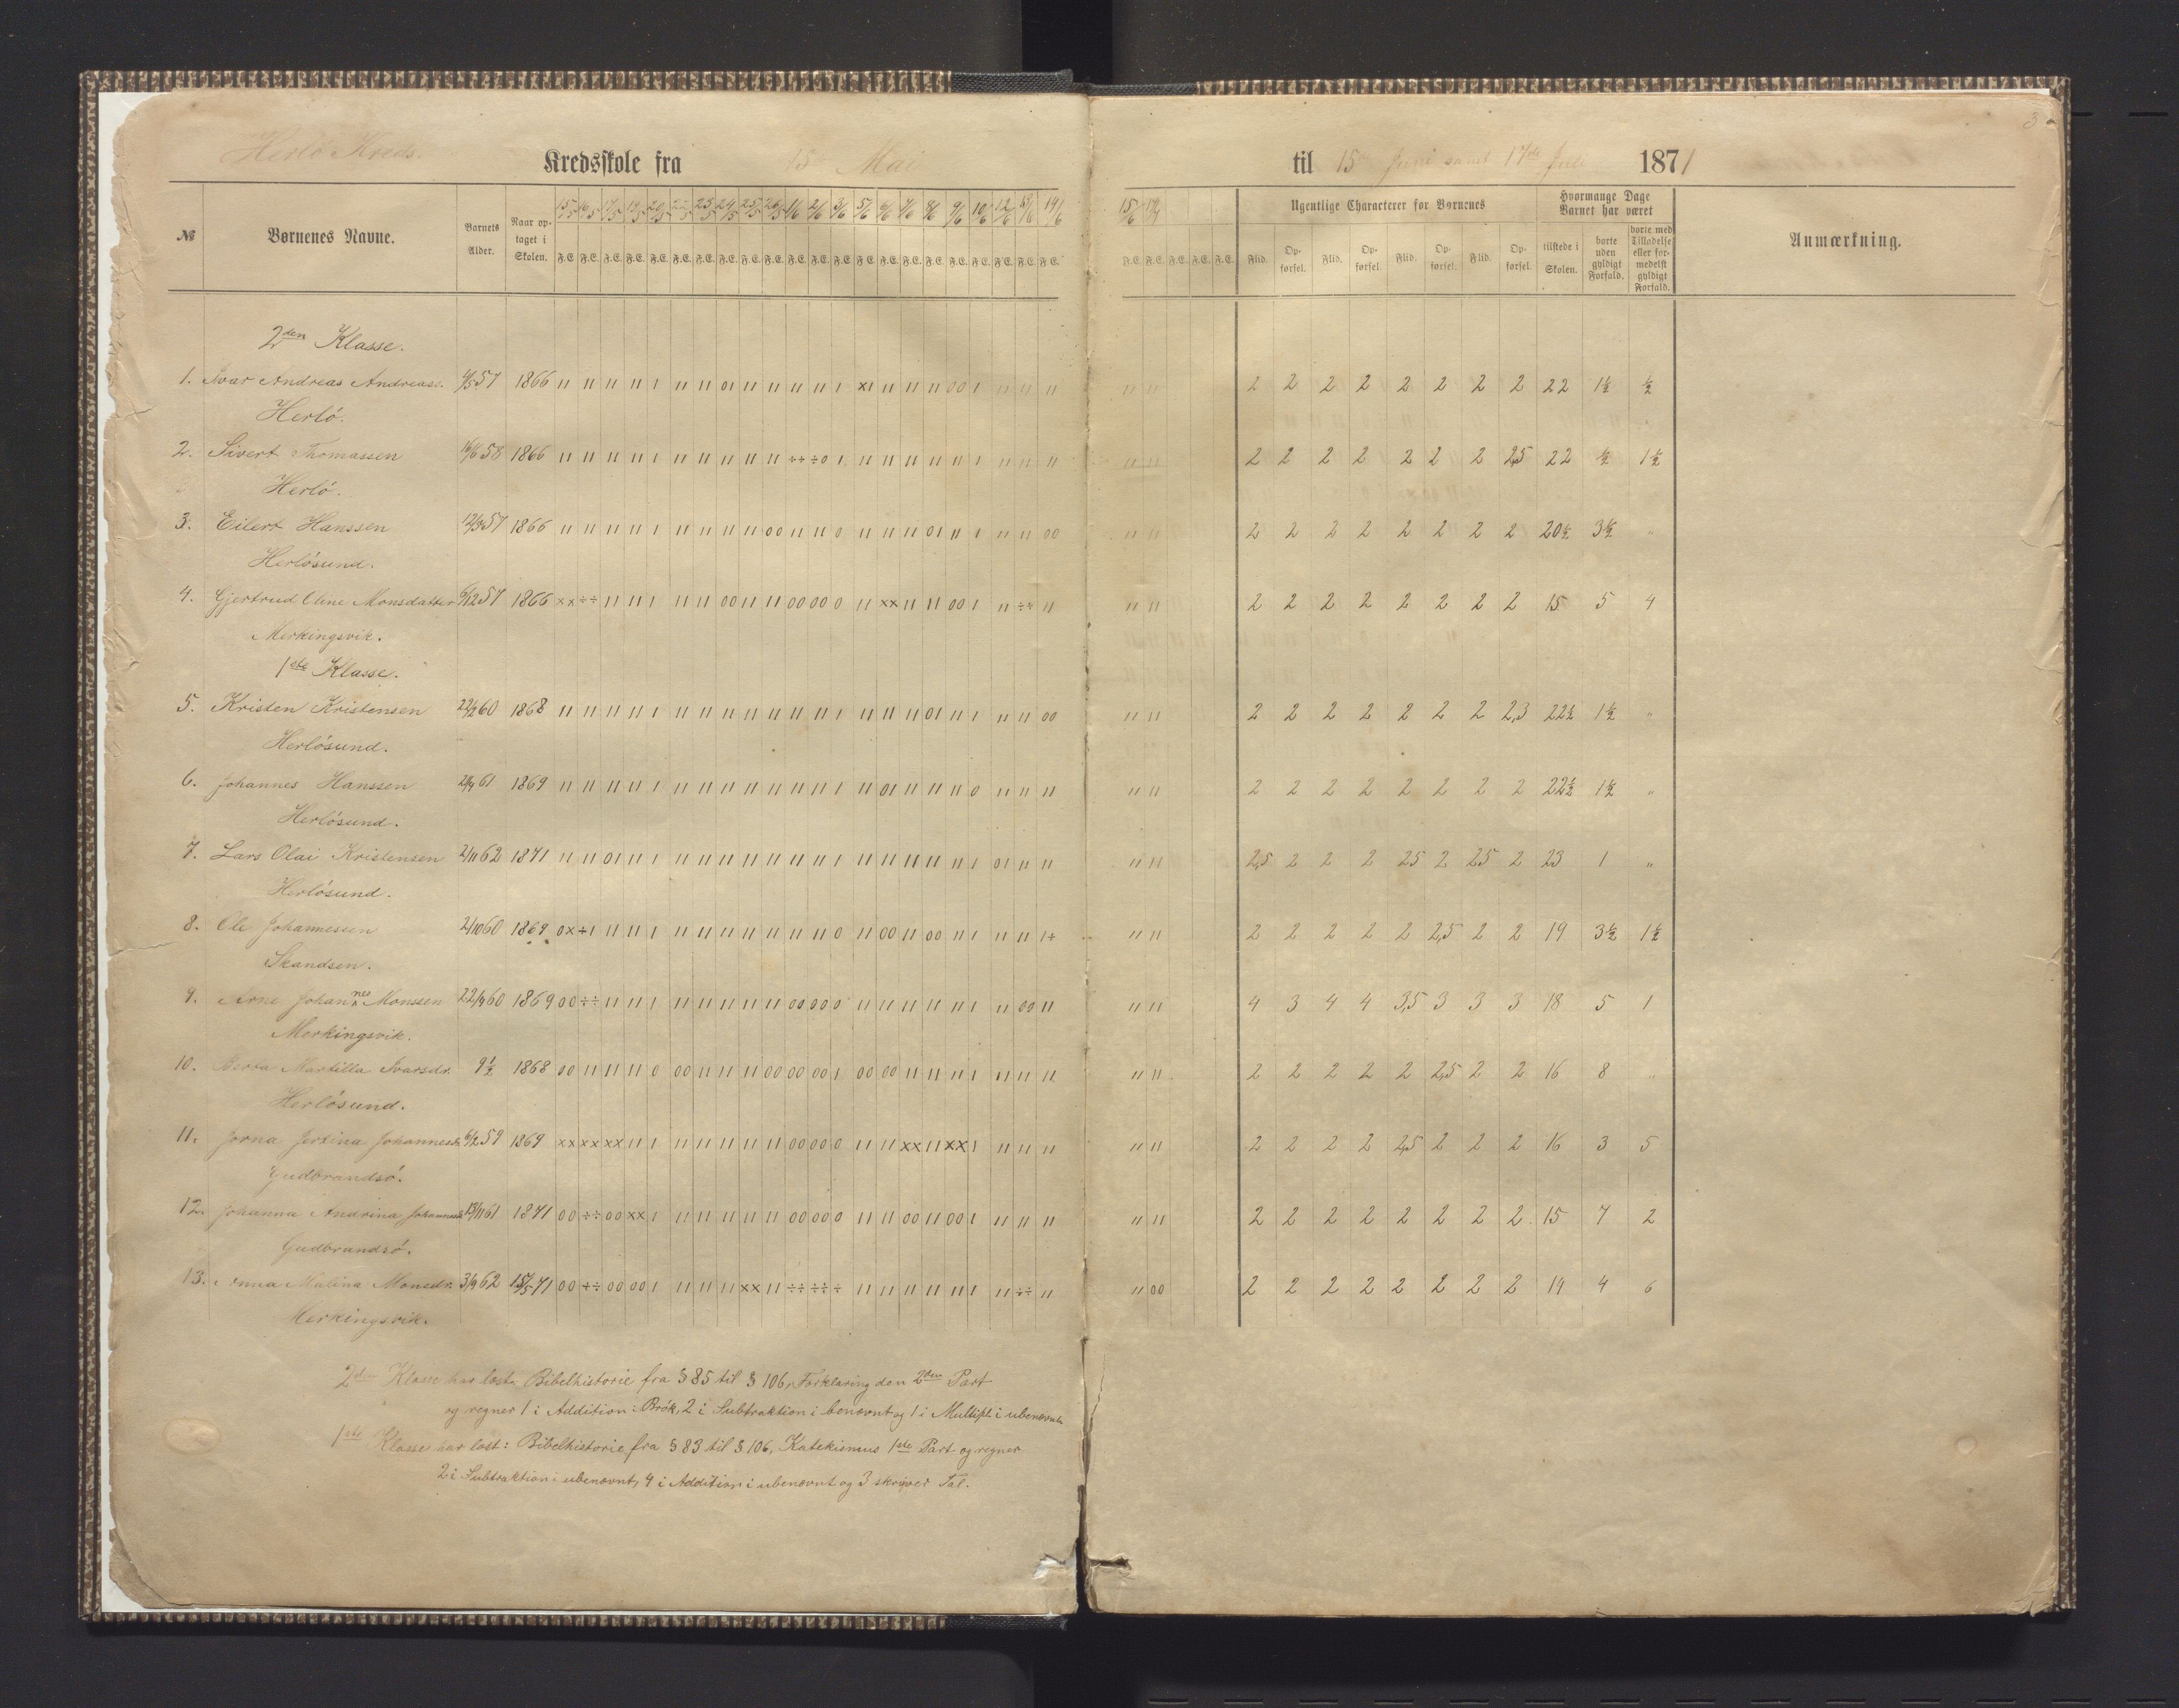 3
Herlö Kreds.
Kredsskole fra 15 Mai til 15de Juni samt 17de Juli 1871
№ Børnenes Navne. Barnets Alder. Naar optaget i Skolen. 15/5 16/5 17/5 19/5 20/5 22/5 23/5 24/5 25/5 26/5 1/6 2/6 3/6 5/6 6/6 7/6 8/6 9/6 10/6 12/6 13/6 14/6 15/6 17/7 Ugentlige Characterer for Børnenes Hvormange Dage Barnet har været Anmærkning.
F.E. F.E. F.E. F.E. F.E. F.E. F.E. F.E. F.E. F.E. F.E. F.E. F.E. F.E. F.E. F.E. F.E. F.E. F.E. F.E. F.E. F.E. F.E. F.E. F.E. F.E. F.E. Flid. Opførsel. Flid. Opførsel. Flid. Opførsel. Flid. Opførsel. tilstede i Skolen. borte uden gyldigt Forfald. borte med Tilladelse eller formedelst gyldigt Forfald.
2den Klasse.
1. Ivar Andreas Andreass. 4/5 57 1866 11 11 11 11 1 11 11 01 11 11 11 11 1 x1 11 11 11 00 1 11 11 11 11 11 2 2 2 2 2 2 2 2 22 1½ ½
Herlö.
2. Sivert Thomassen 16/6 58 1866 11 11 11 11 1 11 11 11 11 11 ÷÷ ÷0 1 11 11 11 11 11 1 11 11 11 11 11 2 2 2 2 2 2 2 2,5 22 ½ 1½
Herlö.
3. Eilert Hanssen 12/3 57 1866 11 11 11 11 1 11 11 11 11 00 11 11 0 11 11 11 01 11 1 11 11 00 11 11 2 2 2 2 2 2 2 2 20½ 3½ "
Herlösund.
4. Gjertrud Oline Monsdatter 6/12 57 1866 xx ÷÷ 11 11 1 11 11 00 11 11 00 00 0 11 xx 11 11 00 1 11 ÷÷ 11 11 11 2 2 2 2 2 2 2 2 15 5 4
Merkingsvik.
1ste Klasse.
5. Kristen Kristensen 22/2 60 1868 11 11 11 11 1 11 11 11 11 11 11 11 1 11 11 11 01 11 1 11 11 00 11 11 2 2 2 2 2 2 2 2,3 22½ 1½ "
Herlösund.
6. Johannes Hanssen 29/4 61 1869 11 11 11 11 1 11 11 11 11 11 11 11 1 11 01 11 11 11 0 11 11 11 11 11 2 2 2 2 2 2 2 2 22½ 1½ "
Herlösund.
7. Lars Olai Kristensen 2/11 62 1871 11 11 01 11 1 11 11 11 11 11 11 11 1 11 11 11 11 11 1 01 11 11 11 11 2,5 2 2 2 25 2 25 2 23 1 "
Herlösund.
8. Ole Johannessen 2/10 60 1869 0x ÷1 11 11 1 11 11 11 11 11 11 11 0 11 00 11 00 11 1 11 11 1÷ 11 11 2 2 2 2 2 2,5 2 2 19 3½ 1½
Skandsen.
9. Arne Johannes Monssen 22/9 60 1869 00 ÷÷ 11 11 1 11 11 11 11 11 00 00 0 11 11 11 11 11 1 11 00 11 11 11 4 3 4 4 3,5 3 3 3 18 5 1
Merkingsvik.
10. Berta Martilla Ivarsdr. 9½ 1868 00 11 11 11 0 00 11 11 11 00 00 00 1 00 00 11 11 11 1 11 11 11 11 11 2 2 2 2 2 2,5 2 2 16 8 "
Herlösund.
11. Jorna Jertina Johannesdr. 6/2 59 1869 xx xx xx 11 1 11 11 11 11 11 00 00 0 11 11 xx 11 xx 1 11 11 11 11 11 2 2 2 2 2,5 2 2 2 16 3 5
Gudbrandsö.
12. Johanna Andrina Johannesdr. 13/11 61 1871 00 ÷÷ 00 xx 1 11 11 11 11 11 00 00 0 11 11 00 11 00 1 11 11 11 11 11 2 2 2 2 2 2 2 2 15 7 2
Gudbrandsö.
13. Anna Malina Monsdr. 3/9 62 15/5 71 00 ÷÷ 00 00 1 11 11 11 xx 11 ÷÷ ÷÷ ÷ 11 11 11 11 11 1 11 ÷÷ 11 11 00 2 2 2 2 2 2 2 2 14 4 6
Merkingsvik.
2den Klasse har læst: Bibelhistorie fra § 85 til § 106, Forklaring den 2den Part
og regner 1 i Addition: Brök, 2 i Subtraktion i benævnt og 1 i Multipl. i ubenævnt.
1ste Klasse har læst: Bibelhistorie fra § 83 til § 106, Katekismus 1ste Part og regner
2 i Subtraktion i ubenævnt, 4 i Addition i ubenævnt og 3 skriver Tal.